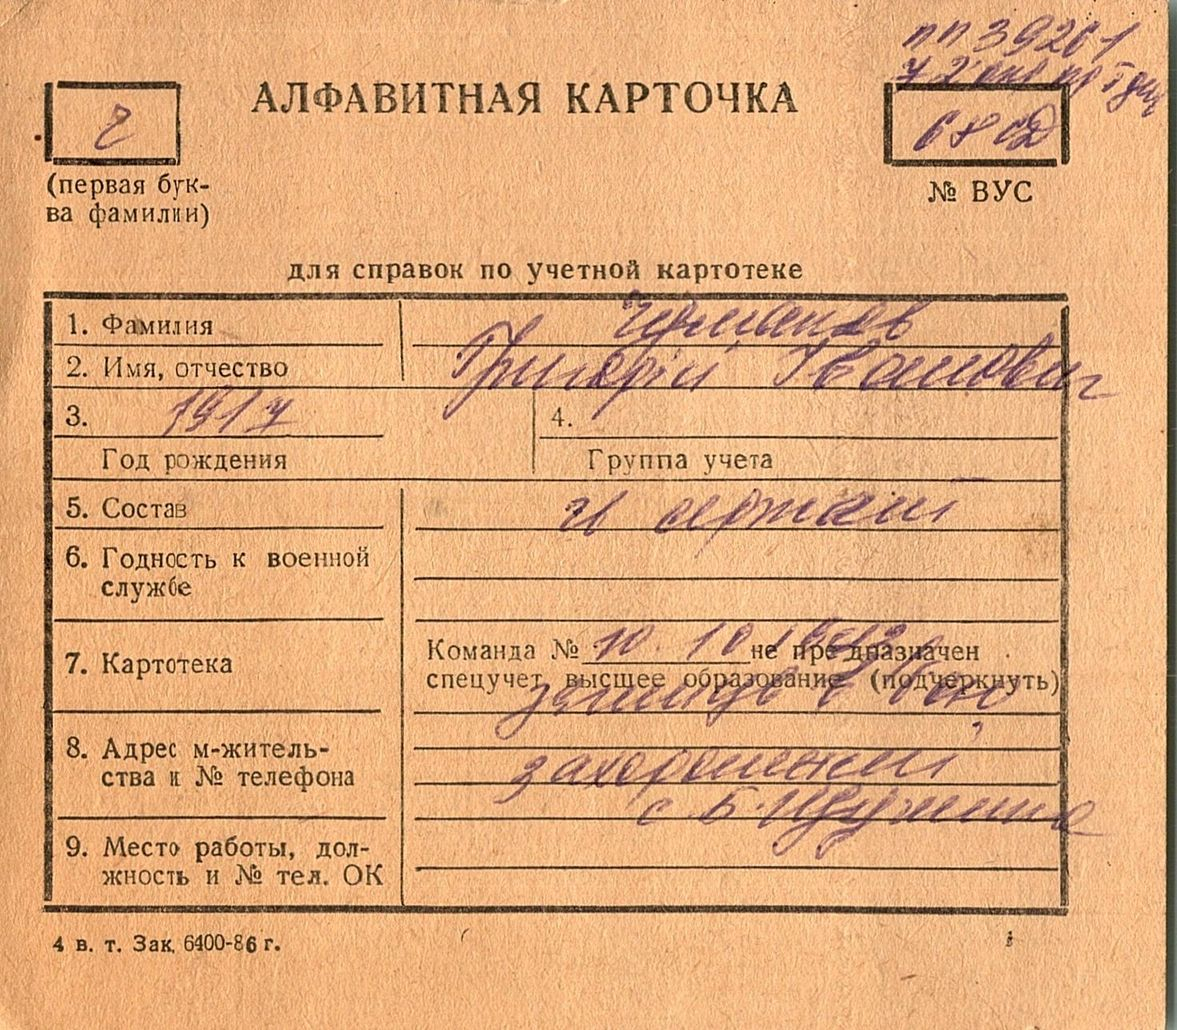 пп 39261
АЛФАВИТНАЯ КАРТОЧКА
Ч
68 сд
(первая бук-
ва фамилии)
№ ВУС
для справок по учетной картотеке
1. Фамилия
2. Имя, отчество Григорій Іванович
3. 1917 4.
Год рождения Группа учета
5. Состав сержант
6. Годность к военной
службе
7. Картотека
Команда № 10.10.1942 не предназначен
спецучет, высшее образование (подчеркнуть)
8. Адрес м-житель-
ства и № телефона
захоронений
с. Б.
9. Место работы, дол-
жность и № тел. ОК
4 в. т. Зак. 6400-86 г.